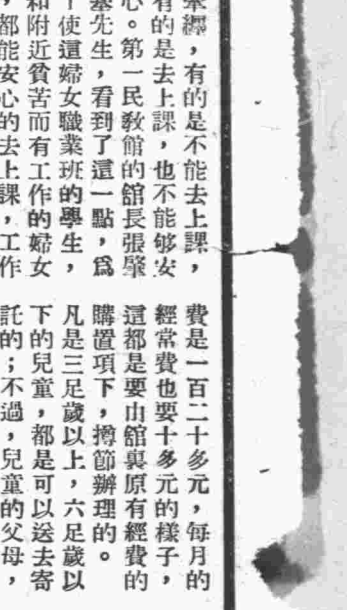 牽纏，有的是不能去上課，
有的是去上課，也不能够安
心。第一民敎館的館長張肇
基先生，看到了這一點，爲
使這婦女職業班的學生，
和附近貧苦而有工作的婦女
，都能安心的去上課，工作
費是一百二十多元，每月的
經常費也要十多元的樣子，
這都是要由舘裏原有經費的
購置項下，撙節辦理的。
凡是三足歲以上，六足歲以
下的兒童，都是可以送去寄
託的；不過，兒童的父母，